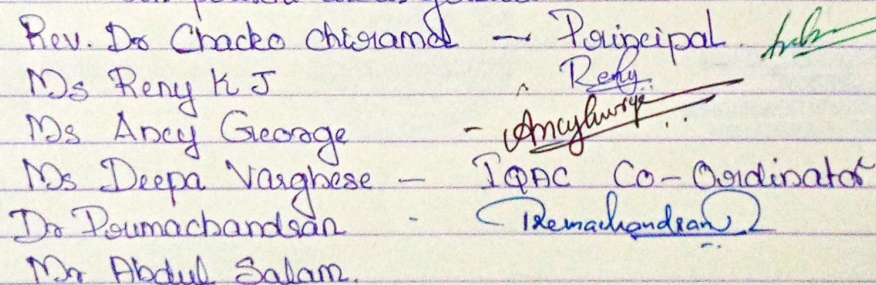 Rev. Dr Chacko Chiramel — Principal.
Ms Reny K J Reny
Ms Ancy George - Ancy George
Ms Deepa Varghese — IQAC Co-Ordinator
Dr Premachandran - Premachandran
Mr Abdul Salam.